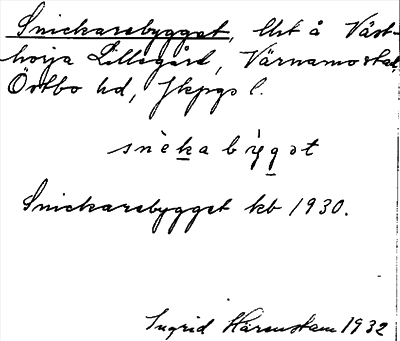 Snickarebygget, lht å Väst-
horja Lillegård, Värnamo stad,
Östbo hd, Jkpgs l.
snèkabỳgət
Snickarebygget kb 1930.
Ingrid Härenstam 1932